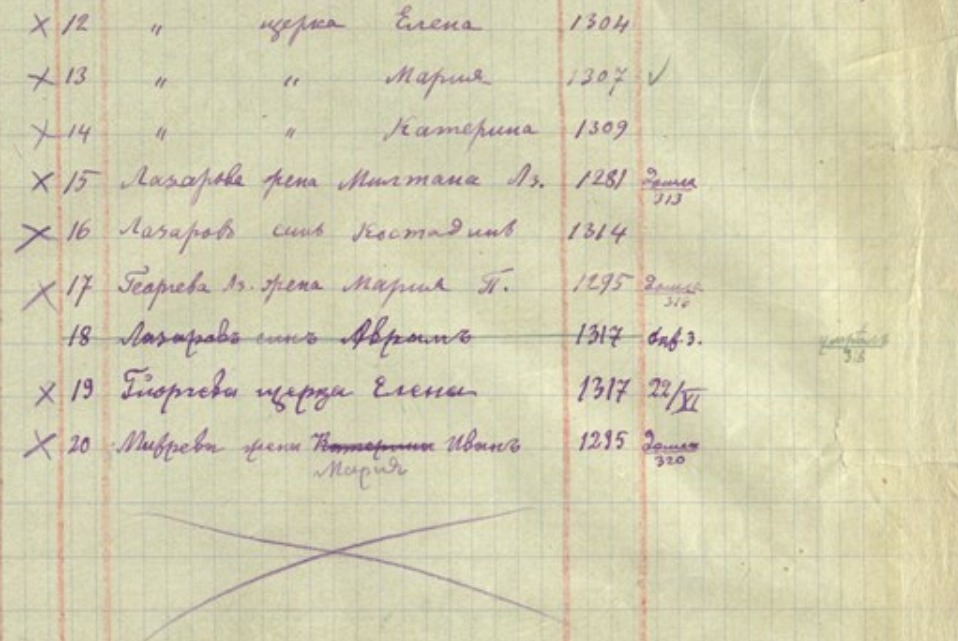 × 12 " щерка Елена 1304
× 13 " " Мария 1307 ✓
× 14 " " Катерина 1309
× 15 Лазарова жена Милтана Лз. 1281 дошла 313
× 16 Лазаровъ синъ Костадинъ 1314
× 17 Георгева Лз. жена Мария П. 1295 дошла 316
18 Лазаровъ синъ Аврамъ 1317 3. умрѣлъ 316
× 19 Гиоргева щерка Елена 1317 22/XI
× 20 жена Катерина Иванъ 1295 дошла 320
Мария